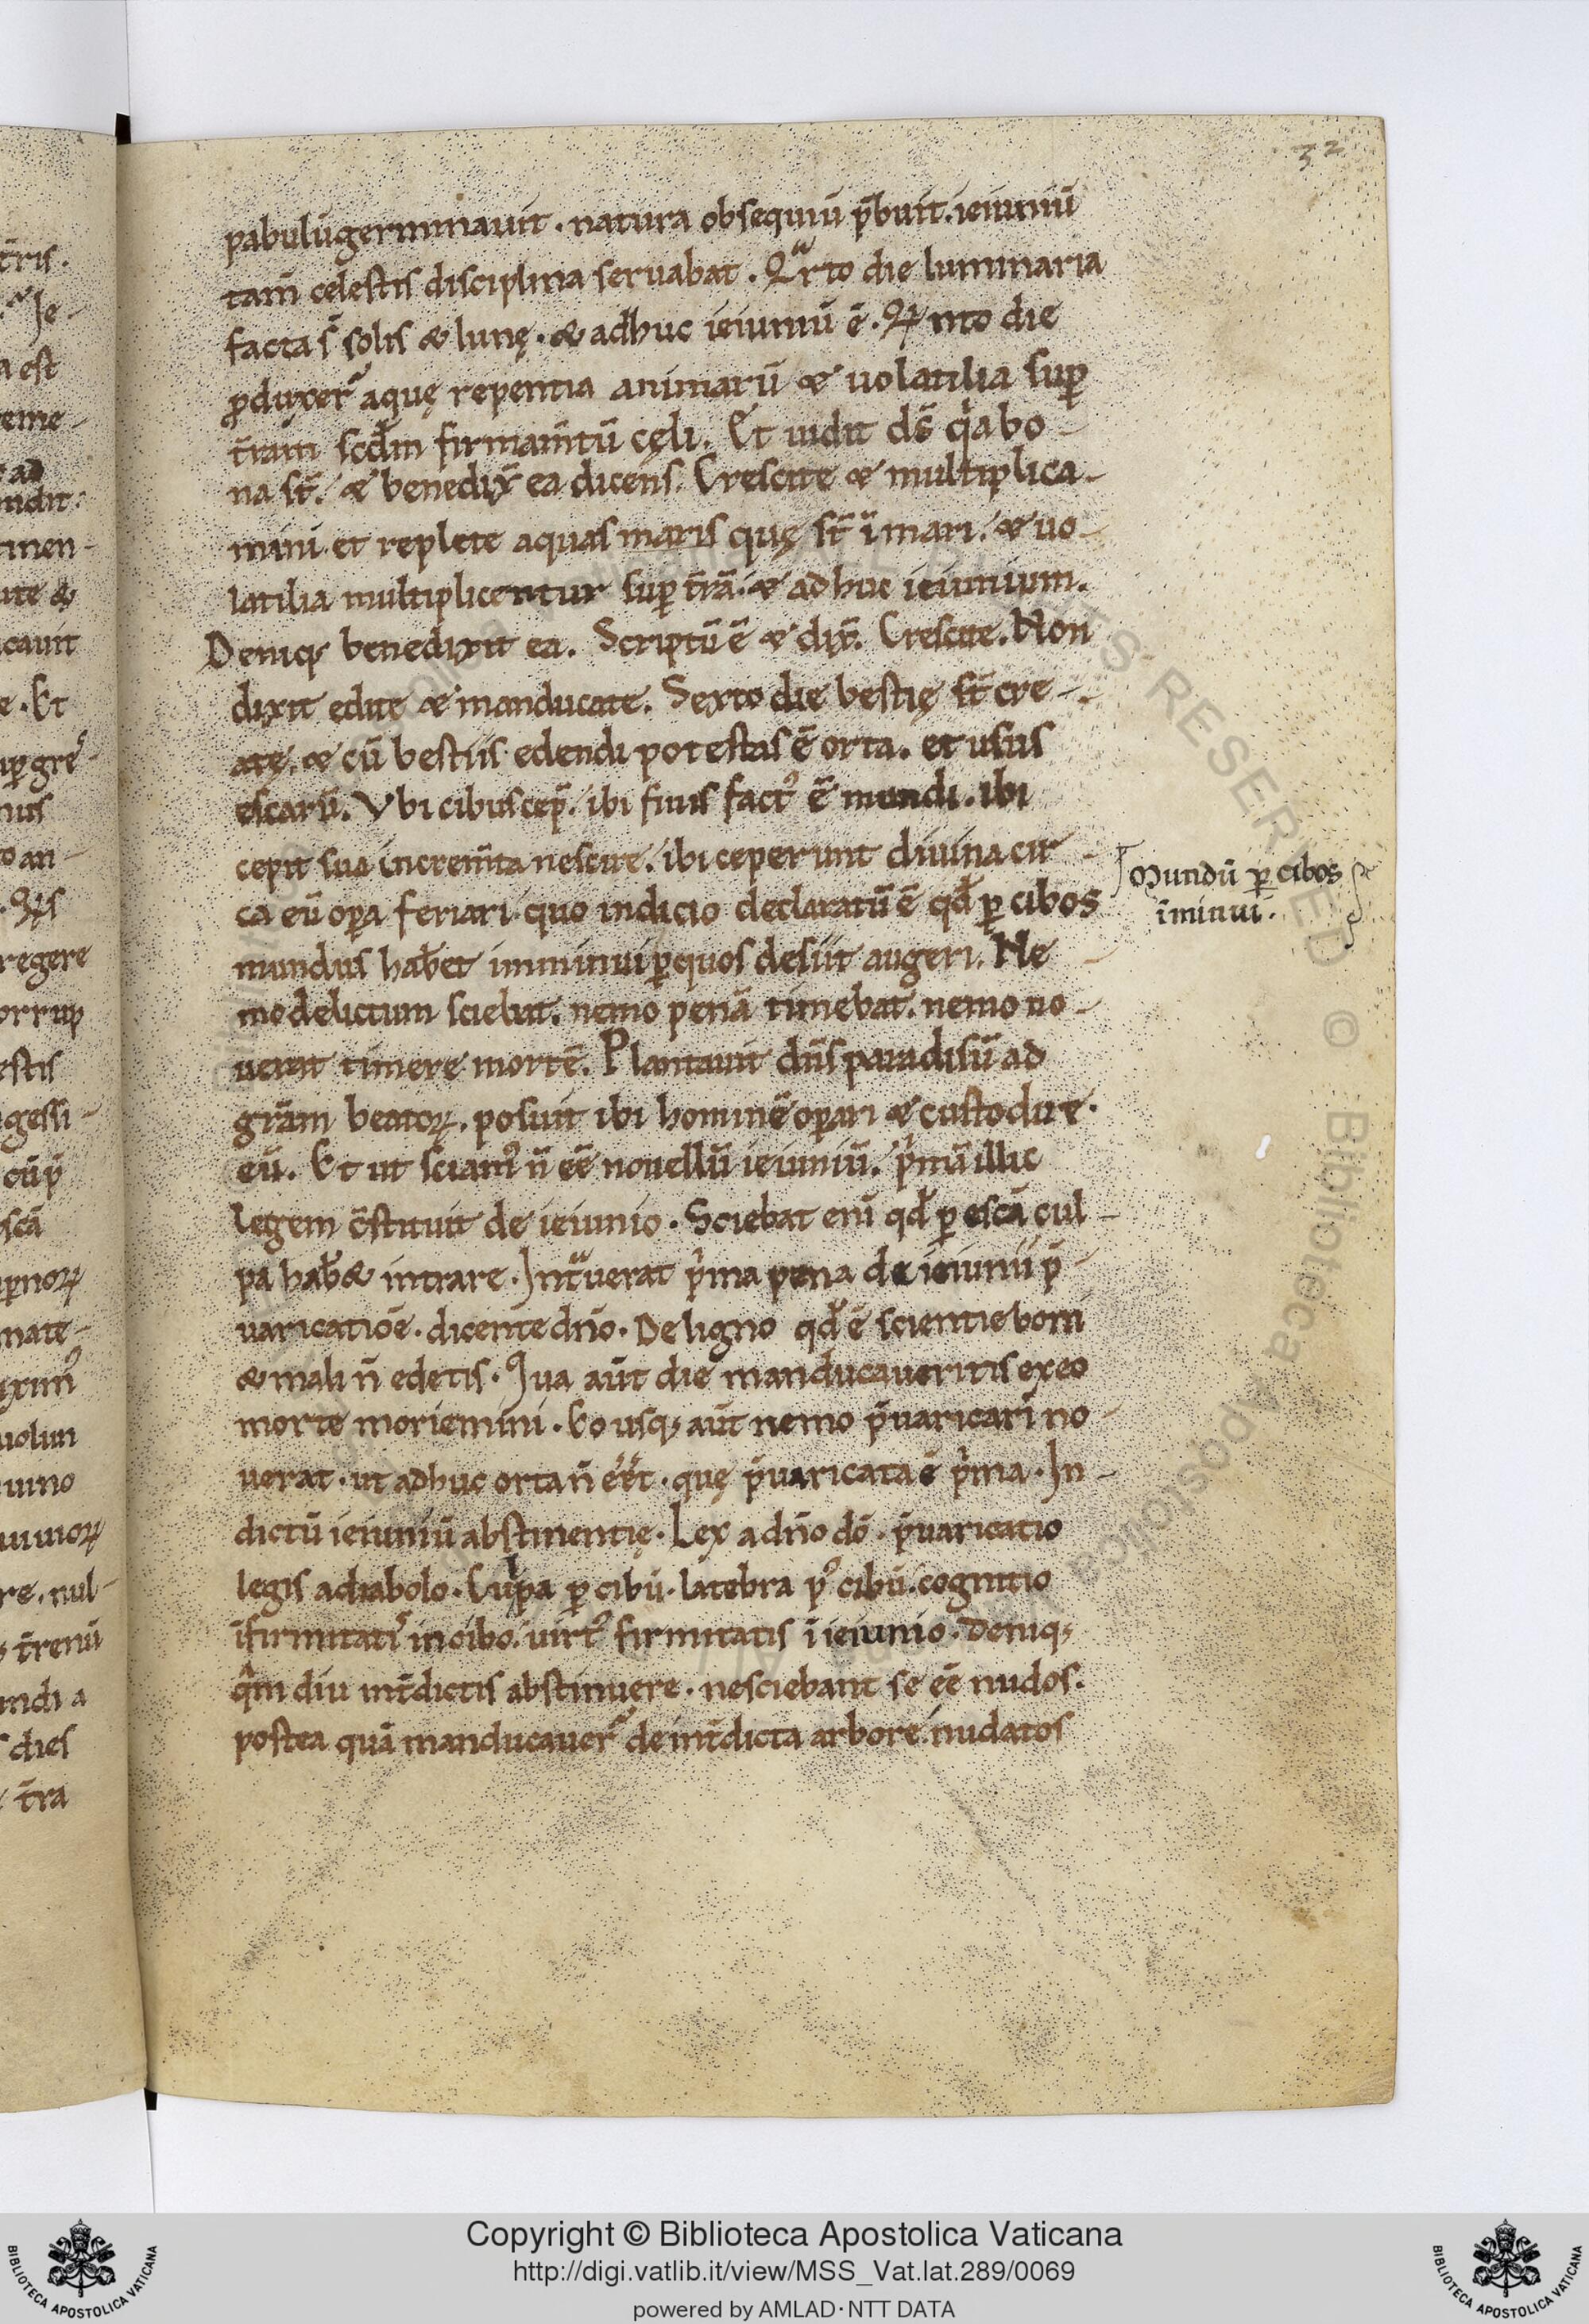 32
pabulū germinauit · natura obsequiū p̄buit. ieiuniū
tam̄ celestis disciplina seruabat . Qͣrto die luminaria
facta s̄ solis & lunę · & adhuc ieiuniū ē . Qͥnto die
ꝓduxer̄ aquę repentia animarū & uolatilia suꝑ
t̄ram scd̄m firmam̄tū cęli . Et uidit ds̄ qͥa bo-
na st̄ . & benedix̄ ea dicens . Crescite & multiplica-
mini et replete aquas maris quę st̄ ī mari . & uo-
latilia multiplicentur suꝑ t̄rā . & adhuc ieiunium .
Deniqꝫ benedixit ea . Scriptū ē & dix̄ . Crescite . Non
dixit edite & manducate . Sexto die bestię st̄ cre-
ate . & cū bestiis edendi potestas ē orta . et usus
escarū . Vbi cibus cep̄ . ibi finis factꝰ ē mundi . ibi
cepit sua increm̄ta nescire . ibi ceperunt diuina cir-
ca eū oꝑa feriari . quo indicio declaratū ē qd̄ ꝑ cibos
mundus hab̄et imminui ꝑ quos desiit augeri . Ne-
mo delictum sciebat . nemo penā timebat . nemo no-
uerat timere mortē . Plantauit dn̄s paradisū ad
gr̄am beatoꝝ . posuit ibi hominē oꝑari & custodire .
eū . Et ut sciamꝰ n̄ eē nouellū ieiuniū . pͥmā illic
legem c̄stituit de ieiunio . Sciebat eni qd̄ ꝑ escā cul-
pa hab̄& intrare . Int̄uerat pͥma pena de ieiunii p̄-
uaricatiōe . dicente dn̄o . De ligno qd̄ ē scientie boni
& mali n̄ edetis . Qua aūt die manducaueritis ex eo
morte moriemini . Eo usqꝫ aūt nemo p̄uaricari no-
uerat . ut adhuc orta n̄ eēt . quę p̄uaricata ē pͥma . In-
dictū ieiuniū abstinentię . Lex a dn̄o dō . p̄uaricatio
legis a diabolo . Culpa ꝑ cibū . latebra pꝰ cibū . cognitio
īfirmitatis in cibo . uirtꝰ firmitatis ī ieiunio . Deniqꝫ
qͣm diu int̄dictis abstinuere . nesciebant se eē nudos .
postea quā manducauer̄ de int̄dicta arbore nudatos
Mundū ꝑ cibos
īminui .
Copyright © Biblioteca Apostolica Vaticana
http://digi.vatlib.it/view/MSS_Vat.lat.289/0069
powered by AMLAD · NTT DATA
BIBLIOTECA APOSTOLICA VATICANA
BIBLIOTECA APOSTOLICA VATICANA